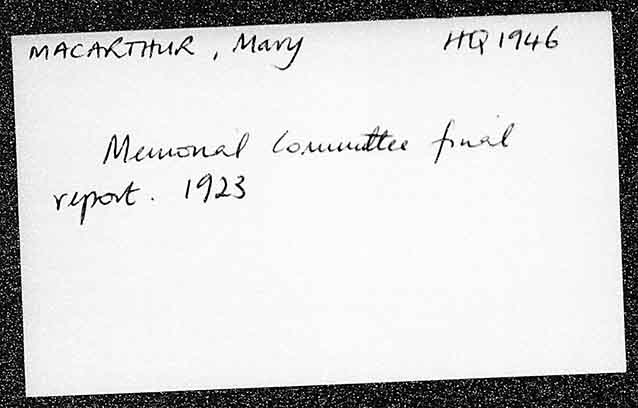 MACARTHUR, Mary HQ 1946
Memorial Committee final
report. 1923